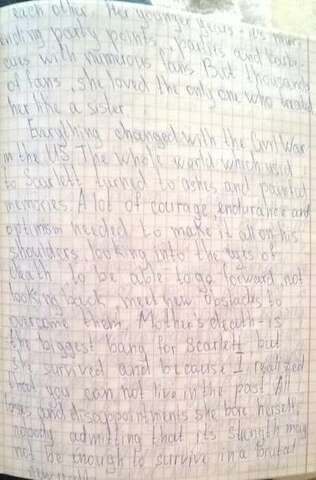 each other. Her younger years - it's never
ending party points, parties and barbe-
cues with numerous fans. But thousands
of fans, she loved the only one who treated
her like a sister.
Everything changed with the Civil War
in the US. The whole world which used
to Scarlett turned to ashes and painful
memories. A lot of courage, endurance and
optimism needed to make it all on his
shoulders, looking into the eyes of
death to be able to go forward, not
looking back, meet new obstacles to
overcome them. Mother's death - is
the biggest bang for Scarlett, but
she survived and because I realized
that you can not live in the past. All
loses and disappointments she bore herself,
nobody admitting that its strength may
not be enough to survive in a brutal